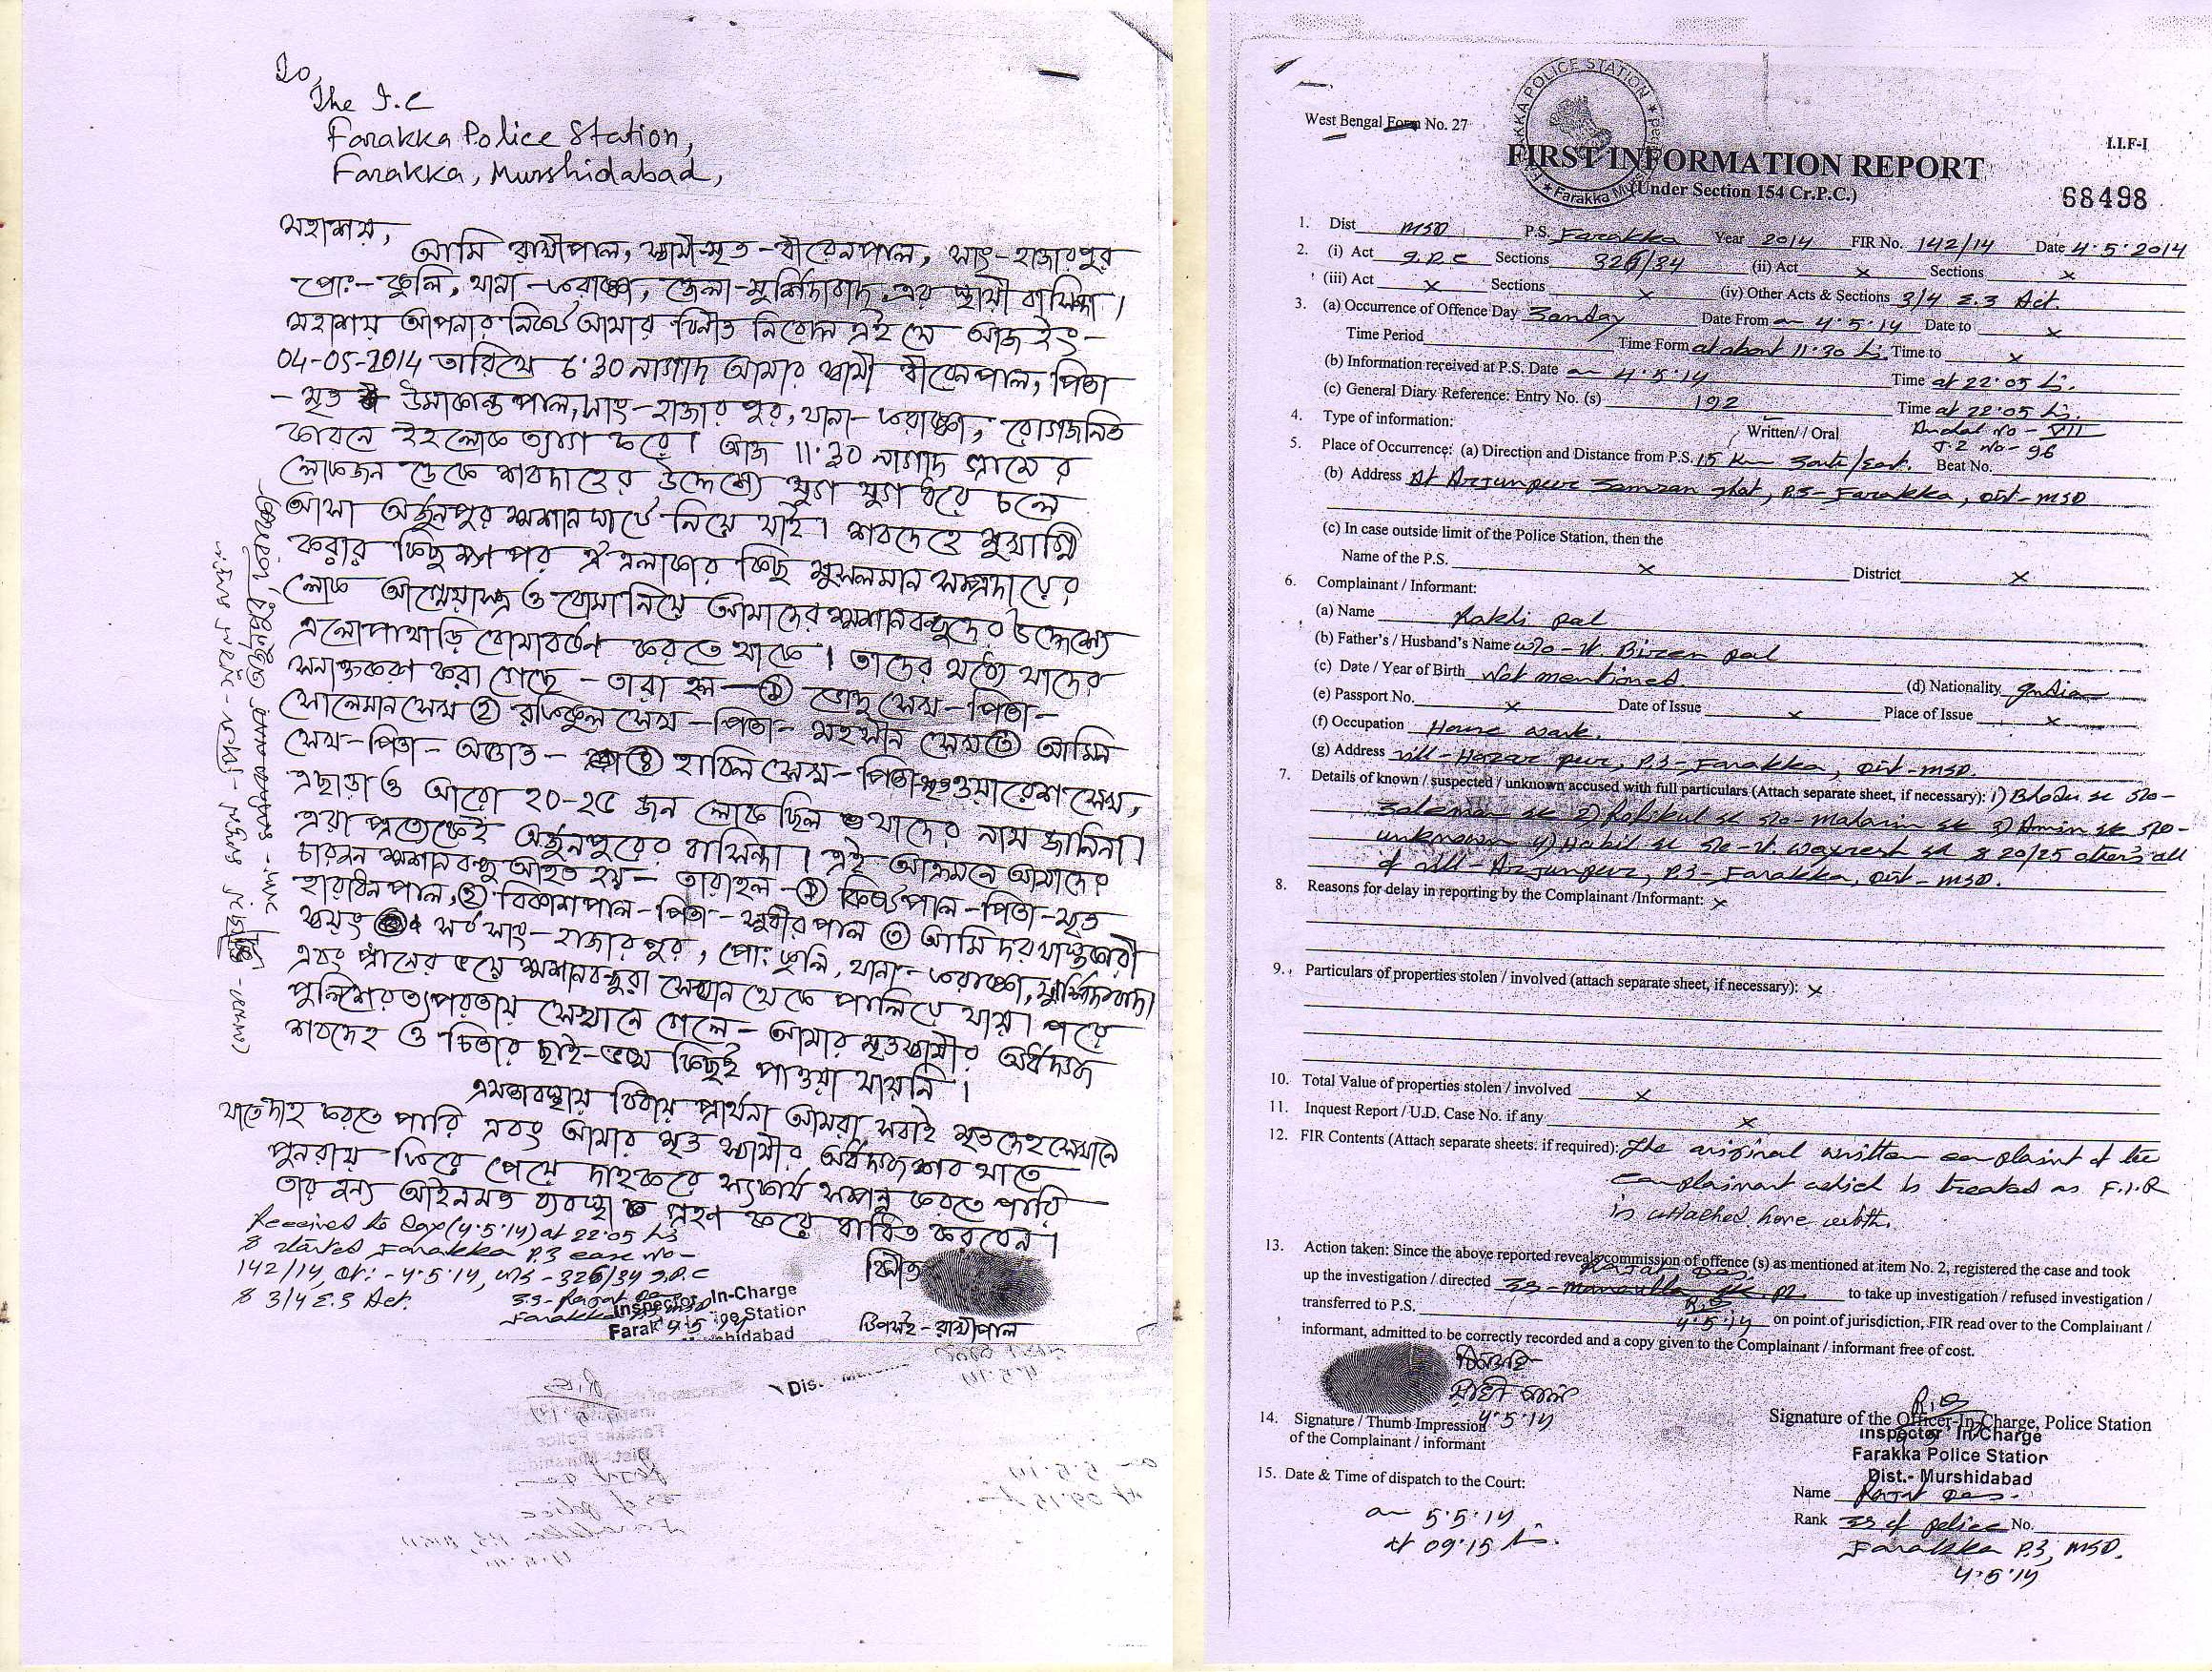 To,
The I.C
Farakka Police Station,
Farakka, Murshidabad,
মহাশয়,
আমি রাখী পাল, স্বামী-মৃত-বীরেন পাল, সাং-হাজারপুর
পোঃ-কুলি, থানা-ফরাক্কা, জেলা-মুর্শিদাবাদ এর স্থায়ী বাসিন্দা।
মহাশয় আপনার নিকট আমার বিনীত নিবেদন এই যে আজ ইং-
04-05-2014 তারিখে ৮:30 নাগাদ আমার স্বামী বীরেন পাল, পিতা
-মৃত উমাকান্ত পাল, সাং-হাজারপুর, থানা-ফরাক্কা, রোগজনিত
কারনে ইহলোক ত্যাগ করে। আজ 11:30 নাগাদ গ্রামের
লোকজন ডেকে শবদাহের উদ্দেশ্যে যুগ যুগ ধরে চলে
আসা অর্জুনপুর শ্মশান ঘাটে নিয়ে যাই। শবদেহে মুখাগ্নি
করার কিছুক্ষণ পর ঐ এলাকার কিছু মুসলমান সম্প্রদায়ের
লোক আগ্নেয়াস্ত্র ও বোমা নিয়ে আমাদের শ্মশানবন্ধুদের উদ্দেশ্যে
এলোপাথাড়ি বোমাবর্ষণ করতে থাকে। তাদের মধ্যে যাদের
সনাক্তকরণ করা গেছে - তারা হল - ① ভোদু সেখ - পিতা -
সোলেমান সেখ ② রফিকুল সেখ - পিতা - মহসীন সেখ ③ আমিন
সেখ - পিতা - অজ্ঞাত - ④ হাবিল সেখ - পিতা-মৃত ওয়ারেশ সেখ,
এছাড়াও আরো ২০-২৫ জন লোক ছিল যাদের নাম জানিনা।
এরা প্রত্যেকেই অর্জুনপুরের বাসিন্দা। এই আক্রমনে আমাদের
চারজন শ্মশানবন্ধু আহত হয় - তারা হল - ① কিষ্ট পাল - পিতা - মৃত
হারাধন পাল, ② বিকাশ পাল - পিতা - সুবীর পাল ③ আমি দরখাস্তকারী
স্বয়ং সর্ব সাং - হাজারপুর, পোঃ কুলি, থানা - ফরাক্কা, মুর্শিদাবাদ।
এবং প্রাণের ভয়ে শ্মশানবন্ধুরা সেখান থেকে পালিয়ে যায়। পরে
পুলিশের তৎপরতায় সেখানে গেলে - আমার মৃত স্বামীর অর্ধদগ্ধ
শবদেহ ও চিতার ছাই-ভস্ম কিছুই পাওয়া যায়নি।
এমতাবস্থায় বিনীত প্রার্থনা আমরা সবাই মৃতদেহ সেখানে
যাতে দাহ করতে পারি এবং আমার মৃত স্বামীর অর্ধদগ্ধ শব যাতে
পুনরায় ফিরে পেয়ে দাহ করে সৎকার্য সম্পন্ন করতে পারি
তার জন্য আইনমত ব্যবস্থা গ্রহণ করে বাধিত করবেন।
বিনীত
টিপসই - রাখী পাল
Received to day (4.5.14) at 22.05 hrs
& started Farakka P.S case no-
142/14, dt:- 4.5.14, u/s - 326/34 I.P.C
& 3/4 E.S Act.
Inspector In-Charge
West Bengal Form No. 27
I.I.F-I
FARAKKA POLICE STATION
FIRST INFORMATION REPORT
(Under Section 154 Cr.P.C.)
68498
1. Dist MSD P.S. Farakka Year 2014 FIR No. 142/14 Date 4.5.2014
2. (i) Act I.P.C Sections 326/34 (ii) Act × Sections ×
(iii) Act × Sections × (iv) Other Acts & Sections 3/4 E.S Act.
3. (a) Occurrence of Offence Day Sunday Date From on 4.5.14 Date to ×
Time Period Time Form at about 11.30 hrs. Time to ×
(b) Information received at P.S. Date on 4.5.14 Time at 22.05 hrs.
(c) General Diary Reference: Entry No. (s) 192 Time at 22.05 hrs.
4. Type of information: Written/ / Oral Anchal no - VII
J.L No - 96
5. Place of Occurrence: (a) Direction and Distance from P.S. 15 Km South/East. Beat No.
(b) Address At Arjunpur Samsan ghat, P.S - Farakka, Dist - MSD
(c) In case outside limit of the Police Station, then the
Name of the P.S. × District ×
6. Complainant / Informant:
(a) Name Rakhi Pal
(b) Father's / Husband's Name w/o - Lt. Biren Pal
(c) Date / Year of Birth Not mentioned. (d) Nationality Indian
(e) Passport No. × Date of Issue × Place of Issue ×
(f) Occupation House work.
(g) Address Vill - Hazarpur, P.S - Farakka, Dist - MSD.
7. Details of known / suspected / unknown accused with full particulars (Attach separate sheet, if necessary): 1) Bhodu sk S/o -
Soleman sk 2) Rofikul sk S/o - Mahasin sk 3) Amin sk S/o -
unknown 4) Habil sk S/o - Lt. Wayresh sk & 20/25 others all
of vill - Arjunpur, P.S - Farakka, Dist - MSD.
8. Reasons for delay in reporting by the Complainant /Informant: ×
9. Particulars of properties stolen / involved (attach separate sheet, if necessary): ×
10. Total Value of properties stolen / involved ×
11. Inquest Report / U.D. Case No. if any ×
12. FIR Contents (Attach separate sheets. if required): The original written complaint of the
complainant which is treated as F.I.R
is attached here with.
13. Action taken: Since the above reported reveals commission of offence (s) as mentioned at item No. 2, registered the case and took
up the investigation / directed Rajat Das. to take up investigation / refused investigation /
transferred to P.S. 4.5.14 on point of jurisdiction, FIR read over to the Complainant /
informant, admitted to be correctly recorded and a copy given to the Complainant / informant free of cost.
টিপসই
রাখী পাল
4.5.14
14. Signature / Thumb Impression
of the Complainant / informant
Signature of the Officer-In-Charge, Police Station
Inspector In-Charge
Farakka Police Station
Dist.- Murshidabad
Name Rajat Das.
Rank SI of police No.
Farakka P.S, MSD.
4.5.14
15. Date & Time of dispatch to the Court:
on 5.5.14
at 09.15 hrs.